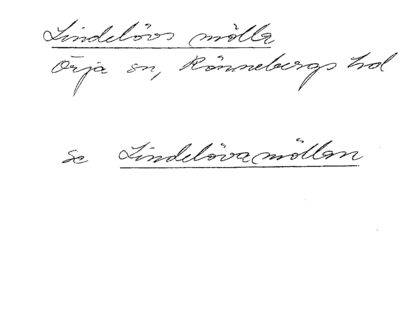 Lindelövs mölla
Örja sn, Rönnebergs hd
se Lindelövamöllan